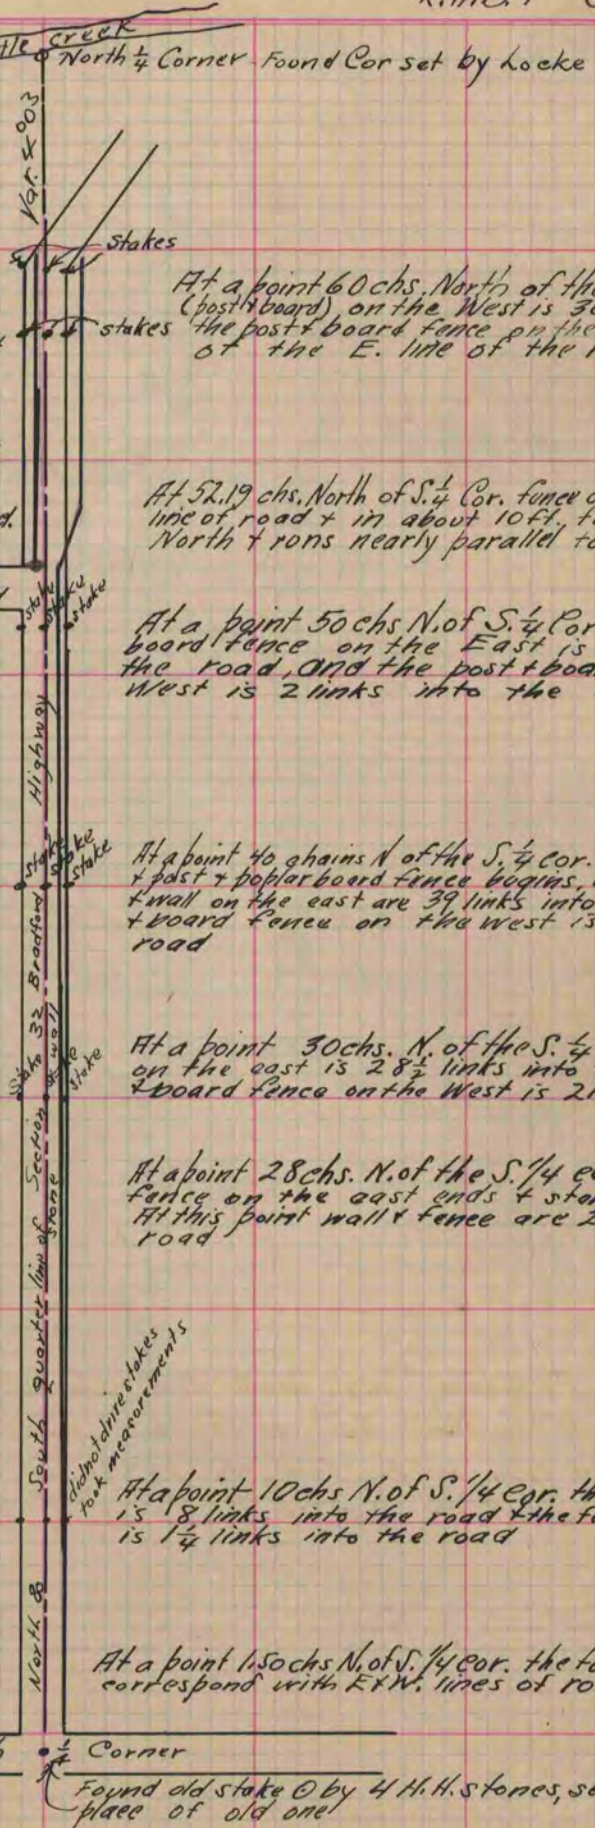 Creek
North ¼ Corner Found Cor set by Locke
Var. 4°03
Stakes
At a point 60 chs. North of the
(post & board) on the West is
stakes
the post & board fence on the
of the E. line of the
At 52.19 chs. North of S. ¼ Cor. fence
line of road & in about 10 ft.
North & rons nearly parallel to
stake
stake
stake
At a point 50 chs N. of S. ¼ Cor
board fence on the East is
the road, and the post & boa
West is 2 links into the
stake
stake
stake
At a point 40 chains N of the S. ¼ cor.
& post & poplar board fence begins,
& wall on the east are 39 links into
& board fence on the west is
road
Stake
stake
stake
At a point 30 chs. N. of the S. ¼
on the east is 28½ links into
& board fence on the West is 2
At a point 28 chs. N. of the S. 1/4
fence on the east ends & sto
At this point wall & fence are 2
road
stone wall
North & South quarter line of Section 32 Bradford Highway
did not drive stakes
took measurements
At a point 10 chs N. of S. 1/4 cor. th
is 8 links into the road & the f
is 1¼ links into the road
At a point 1.50 chs N. of S. 1/4 cor. the f
correspond with E & W. lines of ro
¼ Corner
Found old stake ⊙ by 4 H.H. stones, s
place of old one